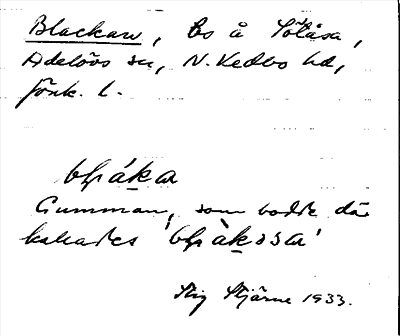 Blackan, bs å Sölåsa,
Adelövs sn, N. Vedbo hd,
Jönk. l.
bḷáka
Gumman, som bodde där
kallades 'bḷàkɔsa'
Stig Stjärne 1933.